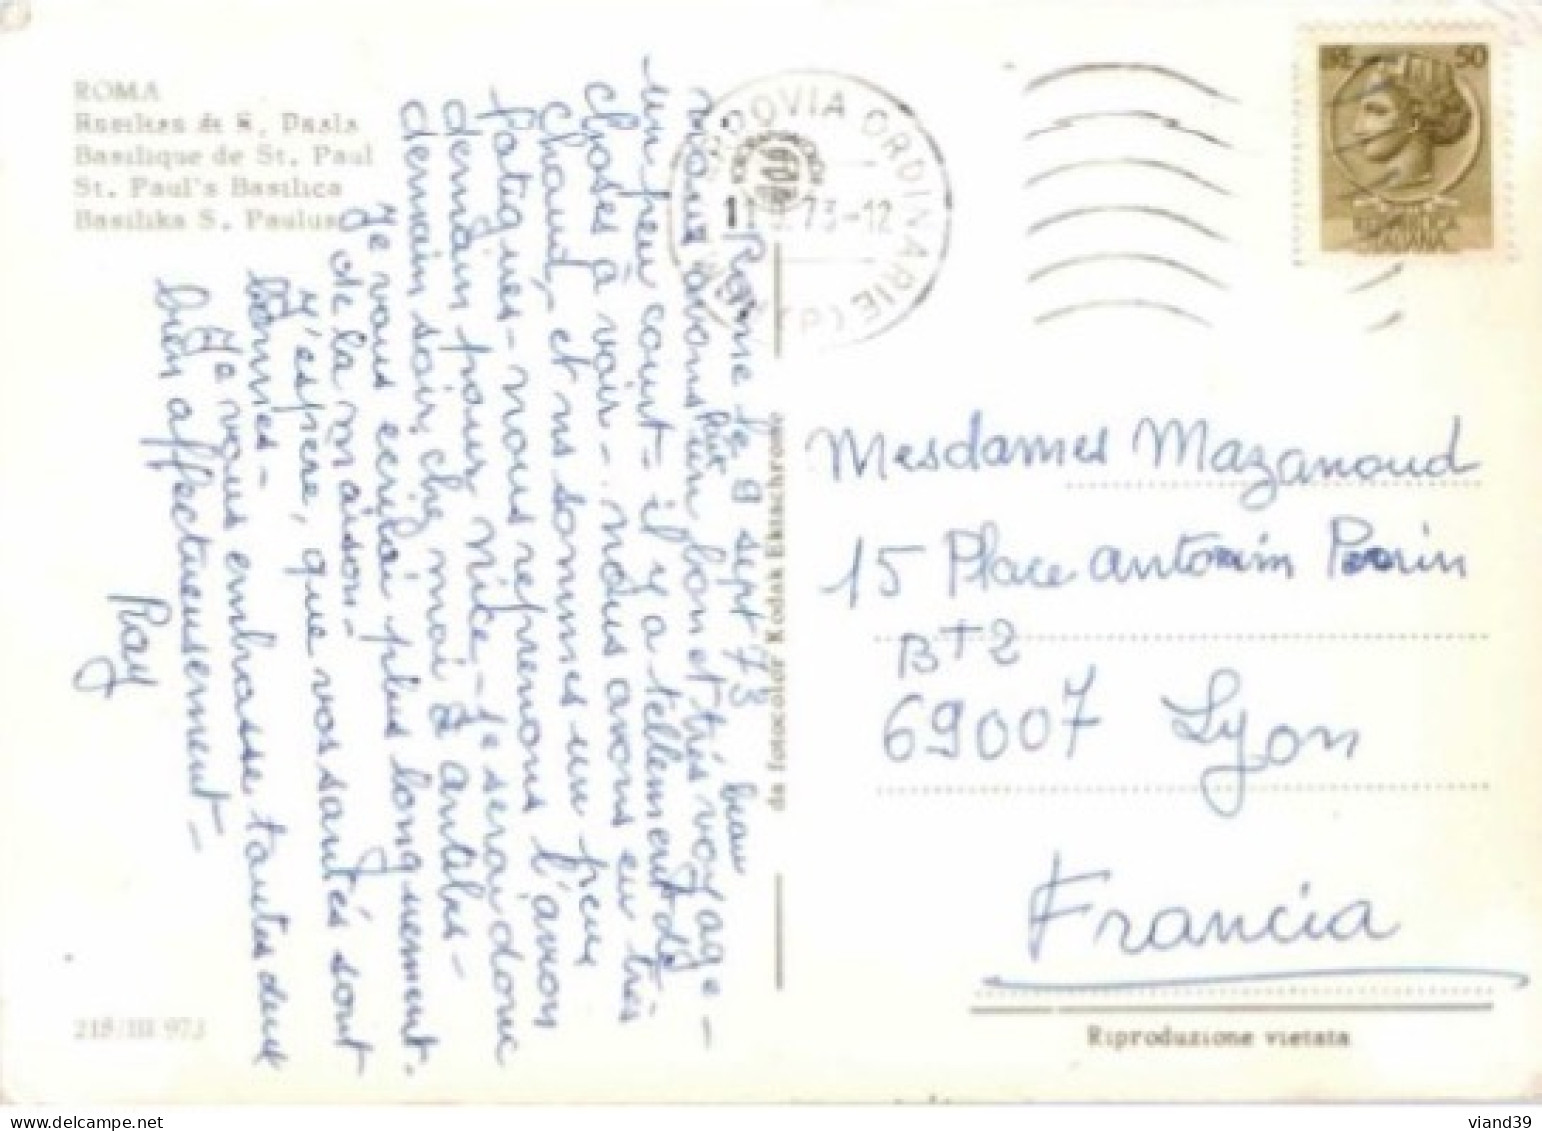 ROMA
Basilica di S. Paolo
Basilique de St. Paul
St. Paul's Basilica
Basilika S. Paulus
Rome le 9 sept 73
nous avons fait un bon et très beau voyage -
un peu court - il y a tellement de
choses à voir - nous avons eu très
chaud, et ns sommes un peu
fatigués - nous reprenons l'avion
demain pour Nice - je serai donc
demain soir, chz moi à antibes -
Je vous ecrirai plus longuement.
de la maison -
J'espère, que vos santés sont
bonnes -
Je vous embrasse toutes deux
bien affectueusement -
Ray
218/III 973
da fotocolor Kodak Ektachrome
FERROVIA ORDINARIE (P
73-12
LIRE 50
REPUBBLICA
ITALIANA
Mesdames Mazanoud
15 Place antonin Perrin
BT2
69007 Lyon
Francia
Riproduzione vietata
viand39